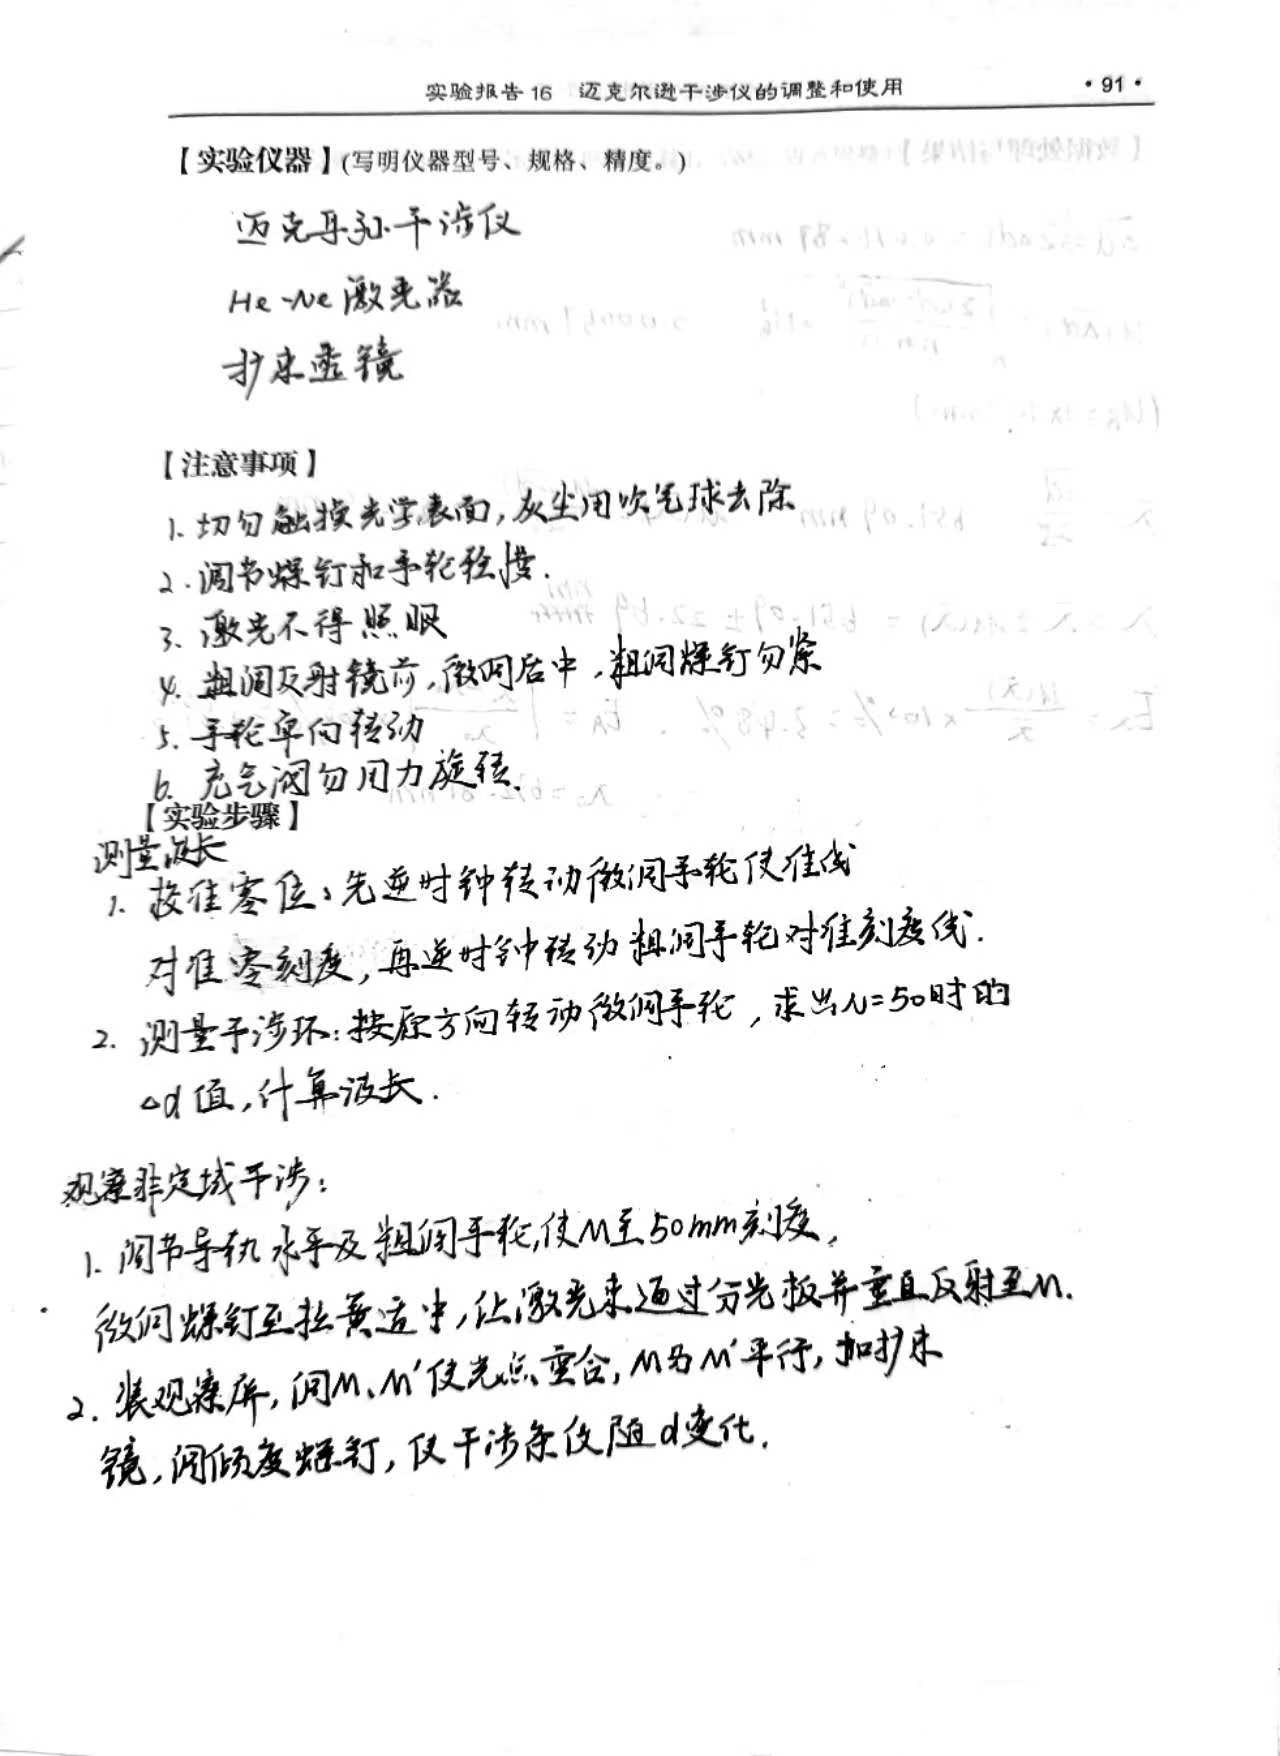 实验报告16 迈克尔逊干涉仪的调整和使用 ·91·
【实验仪器】(写明仪器型号、规格、精度。)
迈克耳孙干涉仪
He-Ne激光器
扩束透镜
【注意事项】
1. 切勿触摸光学表面,灰尘用吹气球去除
2. 调节螺钉和手轮轻拨.
3. 激光不得照眼
4. 粗调反射镜前,微调居中,粗调螺钉勿紧
5. 手轮单向转动
6. 充气阀勿用力旋转.
【实验步骤】
测量波长
1. 校准零位:先逆时钟转动微调手轮使准线
对准零刻度,再逆时钟转动粗调手轮对准刻度线.
2. 测量干涉环:按原方向转动微调手轮,求出N=50时的
△d值,计算波长.
观察非定域干涉:
1. 调节导轨水平及粗调手轮,使M至50mm刻度,
微调螺钉至拉簧适中,让激光束通过分光板并垂直反射至M.
2. 装观察屏,调M、M'使光点重合,M与M'平行,加扩束
镜,调倾度螺钉,使干涉条纹随d变化.